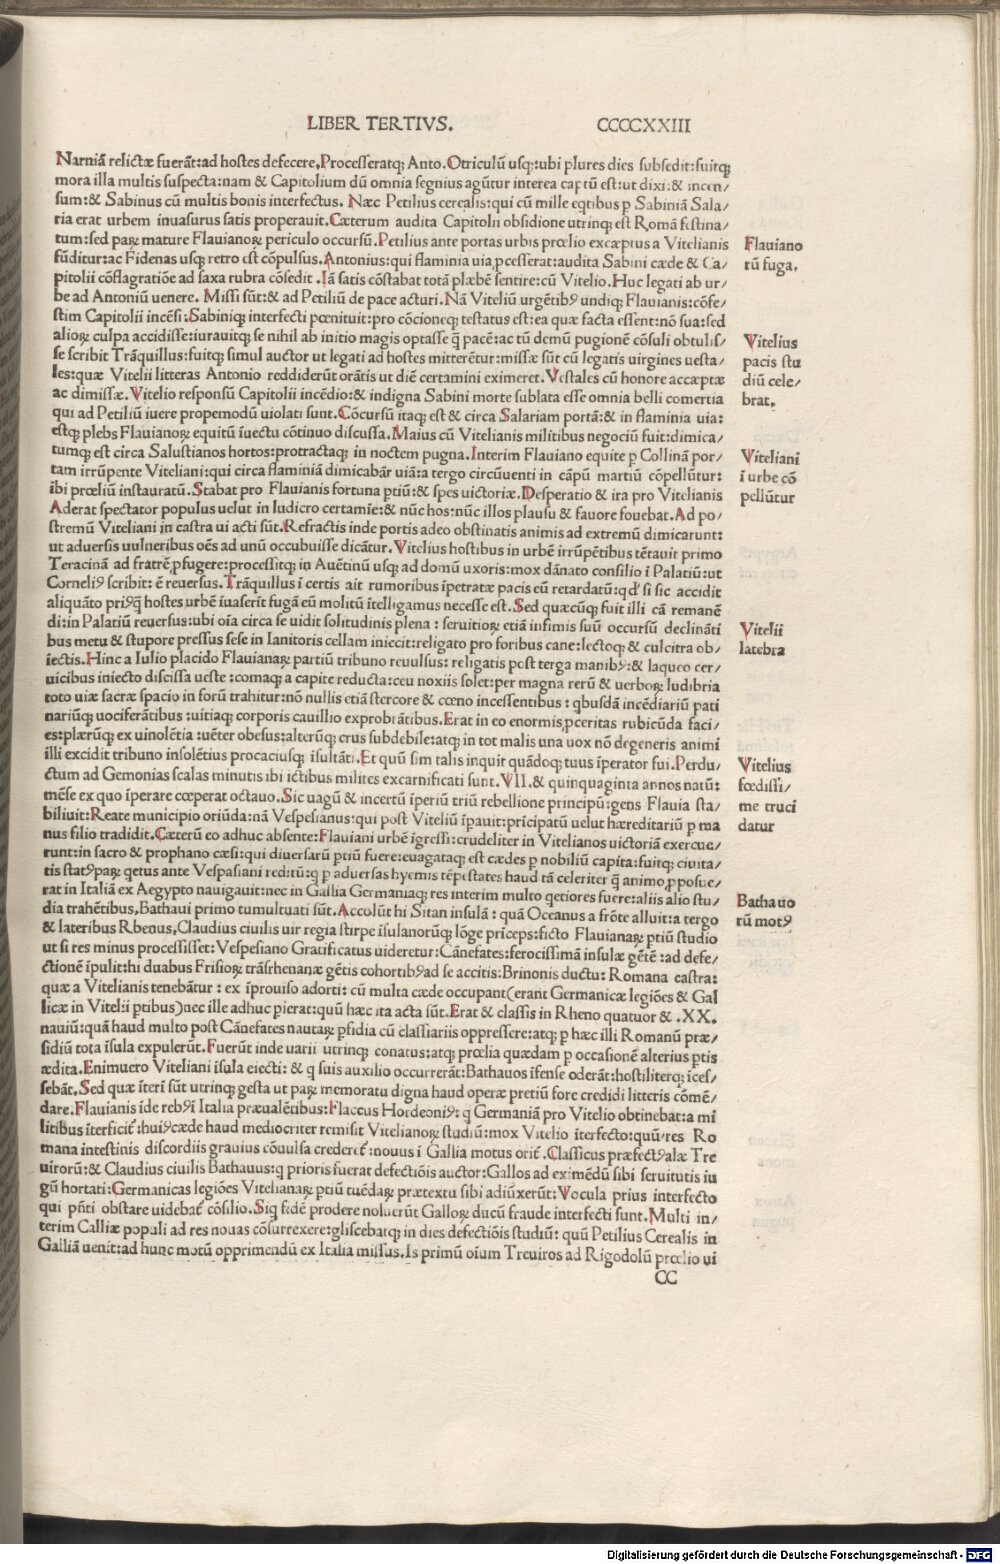 LIBER TERTIVS. CCCCXXIII
Narniā relictæ fuerāt:ad hostes defecere,Procesſeratqꝫ Anto.Otriculū usqꝫ:ubi plures dies subsedit:fuitqꝫ
mora illa multis suspecta:nam & Capitolium dū omnia segnius agūtur interea captū est:ut dixi:& incen/
sum:& Sabinus cū multis bonis interfectus. Næc Petilius cerealis:qui cū mille eqtibus p Sabiniā Sala/
ria erat urbem inuasurus satis properauit.Cæterum audita Capitolii obsidione utrinqꝫ est Romā festina/
tum:sed paꝝ mature Flauianoꝝ periculo occursū.Petilius ante portas urbis prœlio excæptus a Vitelianis
fūditur:ac Fidenas usqꝫ retro est cōpulsus.Antonius:qui flaminia uia pcesserat:audita Sabini cæde & Ca/
pitolii cōflagratiōe ad saxa rubra cōsedit .Iā satis cōstabat totā plæbē sentire:cū Vitelio.Huc legati ab ur/
be ad Antoniū uenere. Missi sūt:& ad Petiliū de pace acturi.Nā Viteliū urgētibꝰ undiqꝫ Flauianis:cōfe/
stim Capitolii incēsi:Sabiniqꝫ interfecti pœnituit:pro cōcioneqꝫ testatus est:ea quæ facta essent:nō sua:sed
alioꝝ culpa accidisse:iurauitqꝫ se nihil ab initio magis optasse q̄ pacē:ac tū demū pugionē cōsuli obtulis/
se scribit Trāquillus:fuitqꝫ simul auctor ut legati ad hostes mitterētur:missæ sūt cū legatis uirgines uesta/
les:quæ Vitelii litteras Antonio reddiderūt orātis ut diē certamini eximeret.Vestales cū honore accæptæ
ac dimissæ.Vitelio responsū Capitolii incēdio:& indigna Sabini morte sublata esse omnia belli comertia
qui ad Petiliū iuere propemodū uiolati sunt.Cōcursū itaqꝫ est & circa Salariam portā:& in flaminia uia:
estqꝫ plebs Flauianoꝝ equitū īuectu cōtinuo discussa.Maius cū Vitelianis militibus negociū fuit:dimica/
tumqꝫ est circa Salustianos hortos:protractaqꝫ in noctem pugna.Interim Flauiano equite p Collinā por/
tam irrūpente Viteliani:qui circa flaminiā dimicabār uiā:a tergo circūuenti in cāpū martiū cōpellūtur:
ibi prœliū instauratū.Stabat pro Flauianis fortuna ptiū:& spes uictoriæ.Desperatio & ira pro Vitelianis
Aderat spectator populus uelut in ludicro certamīe:& nūc hos:nūc illos plausu & fauore fouebat.Ad po/
stremū Viteliani in castra ui acti sūt.Refractis inde portis adeo obstinatis animis ad extremū dimicarunt:
ut aduersis uulneribus oēs ad unū occubuisse dicātur.Vitelius hostibus in urbē irrūpētibus tētauit primo
Teracinā ad fratrē pfugere:processitqꝫ in Auētinū usqꝫ ad domū uxoris:mox dānato consilio ī Palatiū:ut
Corneliꝰ scribit: ē reuersus.Trāquillus ī certis ait rumoribus īpetratæ pacis eū retardatū:qd' si sic accidit
aliquāto priꝰq̄ hostes urbē iuaserit fugā eū molitū ītelligamus necesse est.Sed quæcūqꝫ fuit illi cā remanē
di:in Palatiū reuersus:ubi oīa circa se uidit solitudinis plena : seruitioꝝ etiā infimis suū occursū declināti
bus metu & stupore pressus sese in Ianitoris cellam iniecit:religato pro foribus cane:lectoqꝫ & culcitra ob/
iectis.Hinc a Iulio placido Flauianaꝝ partiū tribuno reuulsus: religatis post terga manibꝰ:& laqueo cer/
uicibus iniecto discissa ueste :comaqꝫ a capite reducta:ceu noxiis solet:per magna rerū & uerboꝝ ludibria
toto uiæ sacræ spacio in forū trahitur:nō nullis etiā stercore & cœno incessentibus : qbusdā incēdiariū pati
nariūqꝫ uociferātibus :uitiaqꝫ corporis cauillio exprobiātibus.Erat in eo enormis pceritas rubicūda faci/
es:plærūqꝫ ex uinolētia :uēter obesus:alterūqꝫ crus subdebile:atqꝫ in tot malis una uox nō degeneris animi
illi excidit tribuno insolētius procaciusqꝫ īsultāti.Et quū sim talis inquit quādoqꝫ tuus īperator fui.Perdu/
ctum ad Gemonias scalas minutis ibi ictibus milites excarnificati sunt.VII.& quinquaginta annos natū:
mēse ex quo īperare cœperat octauo.Sic uagū & incertū īperiū triū rebellione principū:gens Flauia sta/
biliuit:Reate municipio oriūda:nā Vespasianus:qui post Viteliū īpauit:prīcipatū uelut hæreditariū p ma
nus filio tradidit.Cæterū eo adhuc absente:Flauiani urbē īgressi:crudeliter in Vitelianos uictoriā exercue/
runt:in sacro & prophano cæsi:qui diuersarū ptiū fuere:euagataqꝫ est cædes p nobiliū capita:fuitqꝫ ciuita/
tis statꝰ paꝝ qetus ante Vespasiani reditū:q p aduersas hyemis tēpestates haud tā celeriter q̄ animo pposue/
rat in Italiā ex Aegypto nauigauit:nec in Gallia Germaniaqꝫ res interim multo qetiores fuere:aliis alio stu/
dia trahētibus.Bathaui primo tumultuati sūt.Accolūt hi Sitan insulā : quā Oceanus a frōte alluit:a tergo
& lateribus Rhenus,Claudius ciuilis uir regia stirpe īsulanorūqꝫ lōge prīceps:ficto Flauianaꝝ ptiū studio
ut si res minus processisset:Vespesiano Gratificatus uideretur:Cānefates:ferocissimā insulæ gētē :ad defe/
ctionē īpulit:hi duabus Frisioꝝ trāsrhenanæ gētis cohortibꝰad se accitis:Brinonis ductu: Romana castra:
quæ a Vitelianis tenebātur : ex īprouiso adorti: cū multa cæde occupant(erant Germanicæ legiōes & Gal
licæ in Vitelii ptibus)nec ille adhuc pierat:quū hæc ita acta sūt.Erat & classis in Rheno quatuor & .XX.
nauiū:quā haud multo post Cānefates nautaꝝ pfidia cū classiariis oppressere:atqꝫ p hæc illi Romanū præ/
sidiū tota īsula expulerūt.Fuerūt inde uarii utrinqꝫ conatus:atqꝫ prœlia quædam p occasionē alterius ptis
ædita.Enimuero Viteliani īsula eiecti: & q suis auxilio occurrerāt:Bathauos īfense oderāt:hostiliterqꝫ īces/
sebāt.Sed quæ īterī sūt utrinqꝫ gesta ut paꝝ memoratu digna haud operæ pretiū fore credidi litteris cōmē/
dare.Flauianis īde rebꝰī Italia præualētibus:Flaccus Hordeoniꝰ: q Germaniā pro Vitelio obtinebat:a mi
litibus īterficit̄:huiꝰcæde haud mediocriter remisit Vitelianoꝝ studiū:mox Vitelio īterfecto:quū res Ro
mana intestinis discordiis grauius cōuulsa crederet̄:nouus ī Gallia motus orit̄.Classicus præfectꝰalæ Tre
uirorū:& Claudius ciuilis Bathauus:q prioris fuerat defectiōis auctor:Gallos ad eximēdū sibi seruitutis iu
gū hortati:Germanicas legiōes Vitelianaꝝ ptiū tuēdaꝝ prætextu sibi adiūxerūt:Vocula prius interfecto
qui pn̄ti obstare uidebat̄ cōsilio.Siq fidē prodere noluerūt Galloꝝ ducū fraude interfecti sunt.Multi in/
terim Calliæ populi ad res nouas cōsurrexere:gliscebatqꝫ in dies defectiōis studiū: quū Petilius Cerealis in
Galliā uenit:ad hunc motū opprimendū ex Italia missus.Is primū oīum Treuiros ad Rigodolū prœlio ui
CC
Flauiano
rū fuga.
Vitelius
pacis stu
diū cele/
brat.
Viteliani
ī urbe cō
pellūtur
Vitelii
latebra
Vitelius
fœdissi/
me truci
datur
Bathauo
rū motꝰ
Digitalisierung gefördert durch die Deutsche Forschungsgemeinschaft - DFG